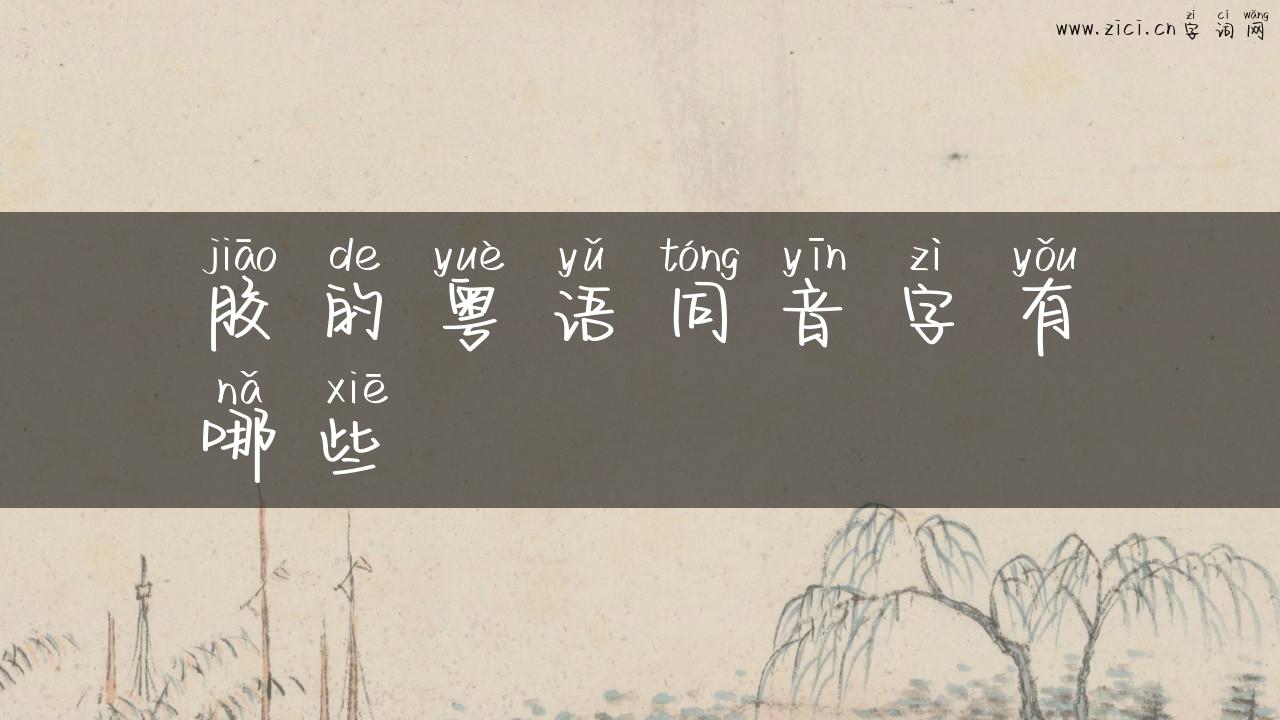 zì cí wǎng
www.zici.cn 字 词 网
jiāo de yuè yǔ tóng yīn zì yǒu
胶 的 粤 语 同 音 字 有
nǎ xiē
哪 些